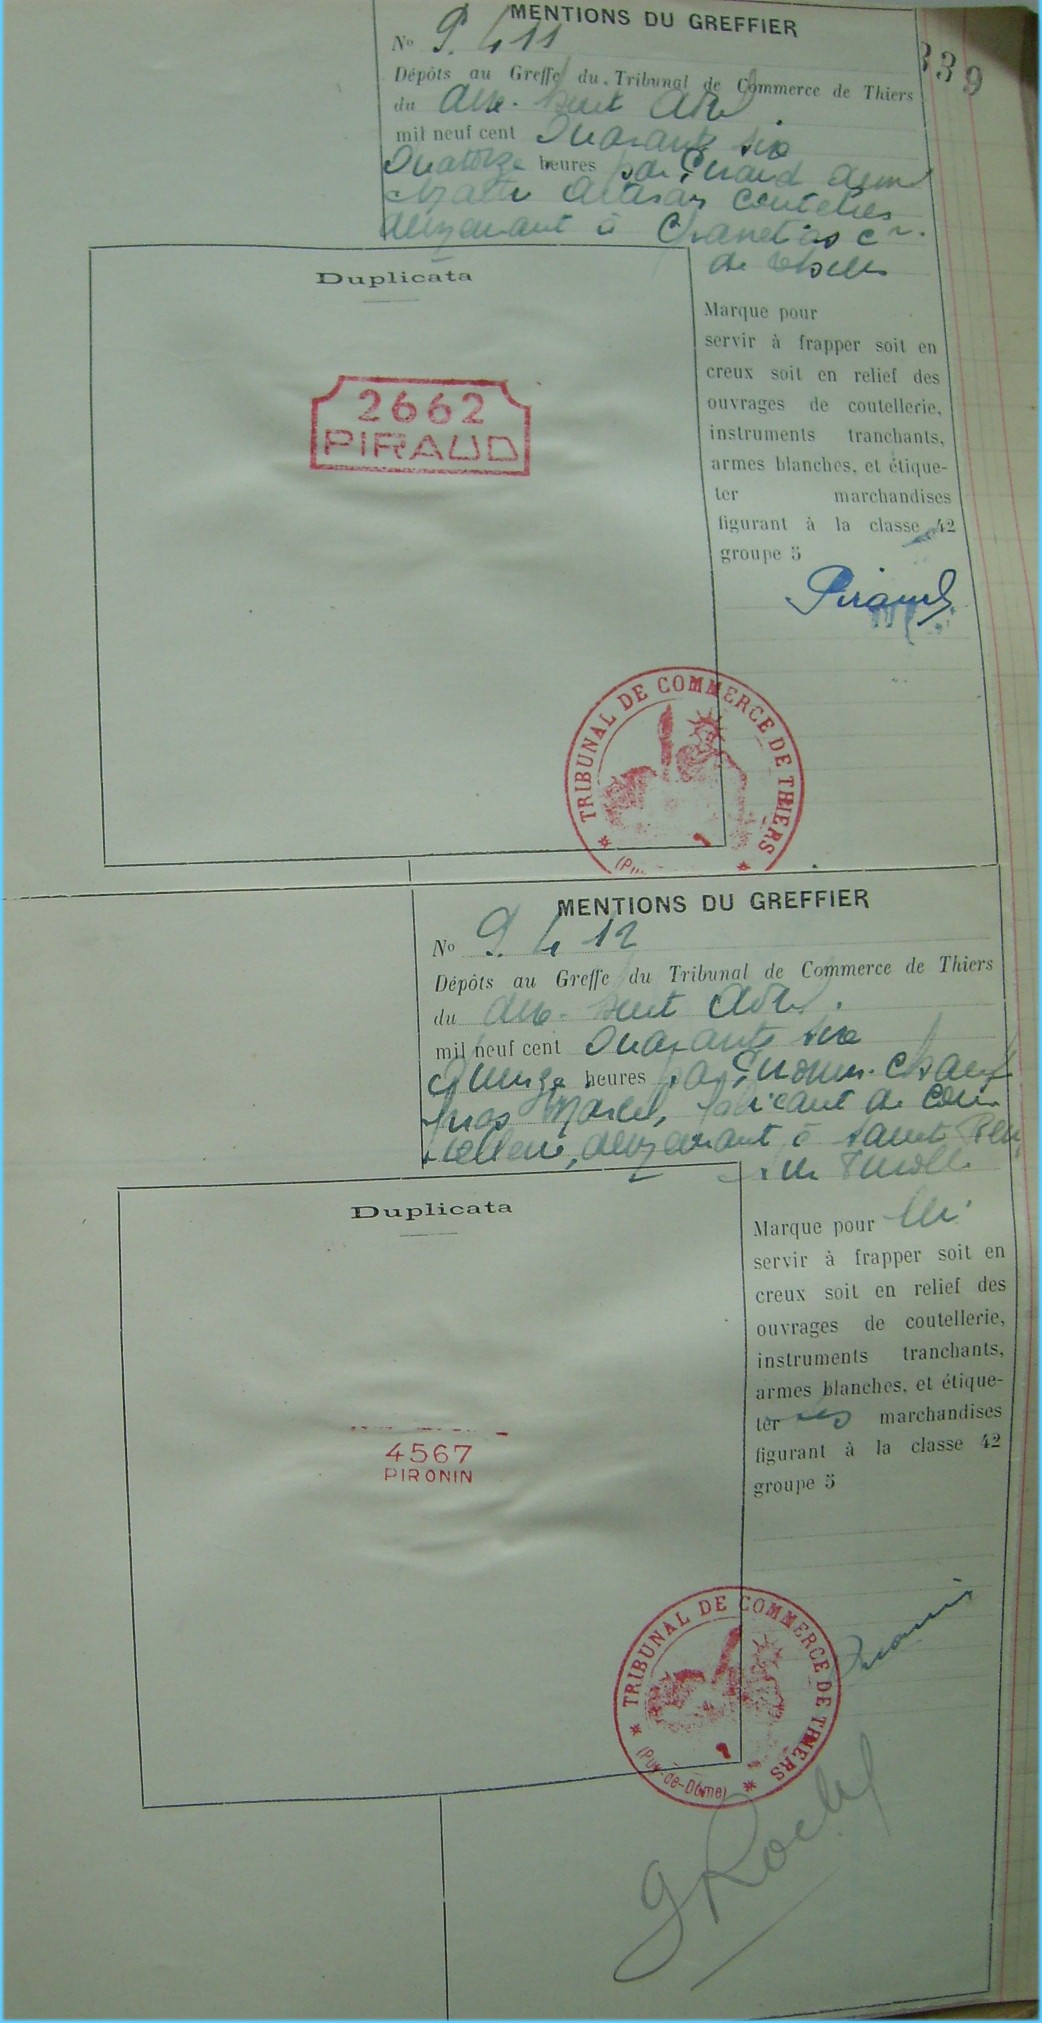 MENTIONS DU GREFFIER
339
No 9.411
Dépôts au Greffe du Tribunal de Commerce de Thiers
du dix-huit Avril
mil neuf cent Quarante six
Quatorze heures par Piraud
artisan coutelier
demeurant à Chanelas cne
de
Duplicata
2662
PIRAUD
Marque pour
servir à frapper soit en
creux soit en relief des
ouvrages de coutellerie,
instruments tranchants,
armes blanches, et étique-
ter marchandises
figurant à la classe 42
groupe 5
Piraud
TRIBUNAL DE COMMERCE DE THIERS
MENTIONS DU GREFFIER
No 9.412
Dépôts au Greffe du Tribunal de Commerce de Thiers
du dix-huit Avril.
mil neuf cent Quarante six
Quinze heures par Pironin-
Marcel, fabricant de cou
tellerie, demeurant à Saint Rémy
sur Durolle
Duplicata
4567
PIRONIN
Marque pour
servir à frapper soit en
creux soit en relief des
ouvrages de coutellerie,
instruments tranchants,
armes blanches, et étique-
ter les marchandises
figurant à la classe 42
groupe 5
Pironin
TRIBUNAL DE COMMERCE DE THIERS
(Puy-de-Dôme)